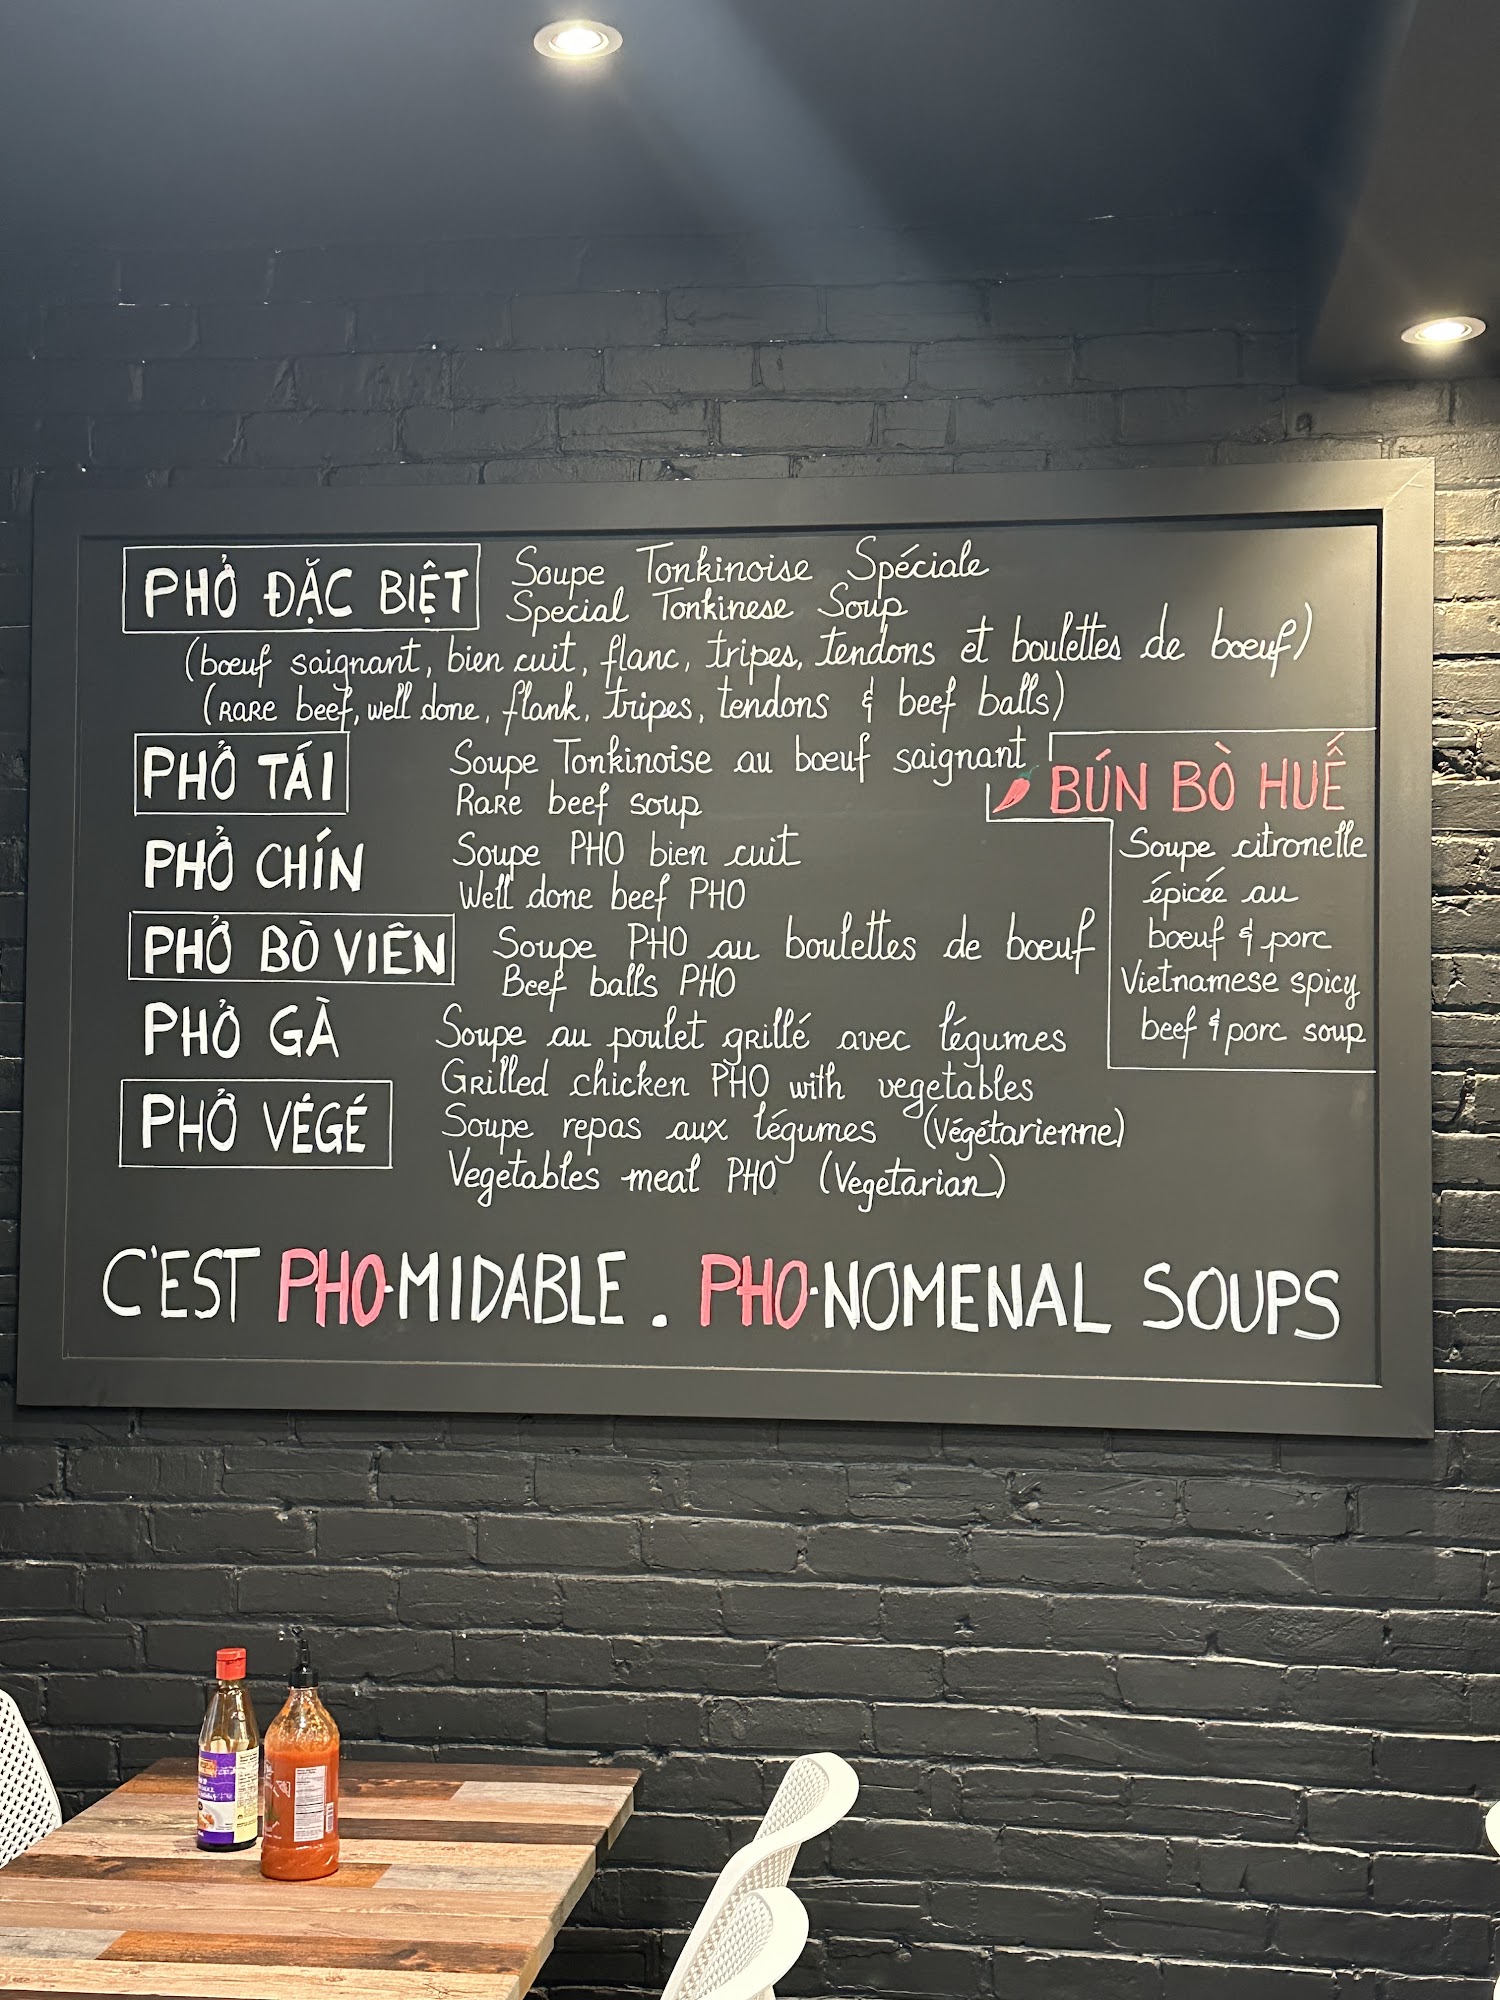 PHỞ ĐẶC BIỆT Soupe Tonkinoise Spéciale
Special Tonkinese Soup
(bœuf saignant, bien cuit, flanc, tripes, tendons et boulettes de bœuf)
(RARE beef, well done, flank, tripes, tendons & beef balls)
PHỞ TÁI Soupe Tonkinoise au bœuf saignant
Rare beef soup
PHỞ CHÍN Soupe PHO bien cuit
Well done beef PHO
PHỞ BÒ VIÊN Soupe PHO au boulettes de bœuf
Beef balls PHO
PHỞ GÀ Soupe au poulet grillé avec légumes
Grilled chicken PHO with vegetables
PHỞ VÉGÉ Soupe repas aux légumes (Végétarienne)
Vegetables meal PHO (Vegetarian)
BÚN BÒ HUẾ
Soupe citronelle
épicée au
bœuf & porc
Vietnamese spicy
beef & porc soup
C'EST PHO-MIDABLE. PHO-NOMENAL SOUPS